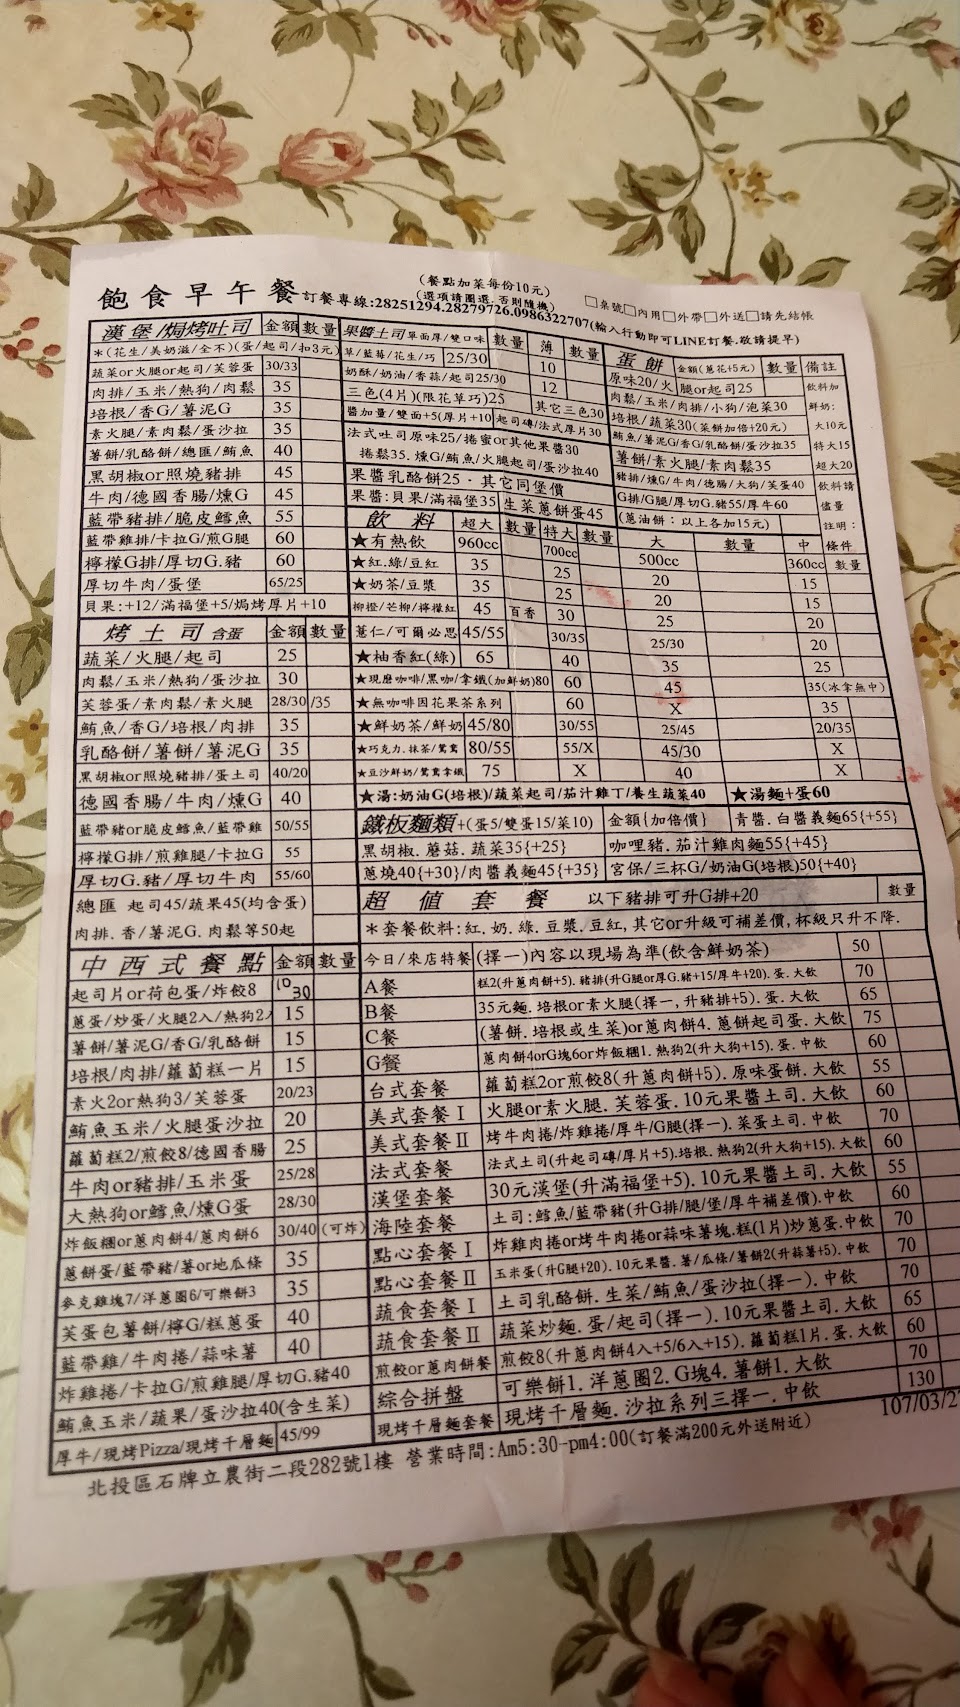 飽食早午餐
(餐點加菜每份10元)
(選項請圈選.否則隨機)
訂餐專線:28251294.28279726.0986322707(輸入行動即可LINE訂餐.敬請提早)
□桌號□內用□外帶□外送□請先結帳
漢堡/焗烤吐司 金額 數量
*(花生/美奶滋/全不)(蛋/起司/扣3元)
蔬菜or火腿or起司/芙蓉蛋 30/33
肉排/玉米/熱狗/肉鬆 35
培根/香G/薯泥G 35
素火腿/素肉鬆/蛋沙拉 35
薯餅/乳酪餅/總匯/鮪魚 40
黑胡椒or照燒豬排 45
牛肉/德國香腸/燻G 45
藍帶豬排/脆皮鱈魚 55
藍帶雞排/卡拉G/煎G腿 60
檸檬G排/厚切G.豬 60
厚切牛肉/蛋堡 65/25
貝果:+12/滿福堡+5/焗烤厚片+10
烤土司含蛋 金額 數量
蔬菜/火腿/起司 25
肉鬆/玉米/熱狗/蛋沙拉 30
芙蓉蛋/素肉鬆/素火腿 28/30 /35
鮪魚/香G/培根/肉排 35
乳酪餅/薯餅/薯泥G 35
黑胡椒or照燒豬排/蛋土司 40/20
德國香腸/牛肉/燻G 40
藍帶豬or脆皮鱈魚/藍帶雞 50/55
檸檬G排/煎雞腿/卡拉G 55
厚切G.豬/厚切牛肉 55/60
總匯 起司45/蔬果45(均含蛋)
肉排.香/薯泥G.肉鬆等50起
中西式餐點 金額 數量
起司片or荷包蛋/炸餃8 10 30
蔥蛋/炒蛋/火腿2入/熱狗2入 15
薯餅/薯泥G/香G/乳酪餅 15
培根/肉排/蘿蔔糕一片 15
素火2or熱狗3/芙蓉蛋 20/23
鮪魚玉米/火腿蛋沙拉 20
蘿蔔糕2/煎餃8/德國香腸 25
牛肉or豬排/玉米蛋 25/28
大熱狗or鱈魚/燻G蛋 28/30
炸飯糰or蔥肉餅4/蔥肉餅6 30/40(可炸)
蔥餅蛋/藍帶豬/薯or地瓜條 35
麥克雞塊7/洋蔥圈6/可樂餅3 35
芙蛋包薯餅/檸G/糕蔥蛋 40
藍帶雞/牛肉捲/蒜味薯 40
炸雞捲/卡拉G/煎雞腿/厚切G.豬40
鮪魚玉米/蔬果/蛋沙拉40(含生菜)
厚牛/現烤Pizza/現烤千層麵 45/99
果醬土司 單面厚/雙口味 數量 薄 數量
草/藍莓/花生/巧 25/30 10
奶酥/奶油/香蒜/起司25/30 12
三色(4片)(限花草巧)25 其它三色30
醬加量/雙面+5(厚片+10) 起司磚/法式厚片30
法式吐司原味25/捲蜜or其他果醬30
捲鬆35.燻G/鮪魚/火腿起司/蛋沙拉40
果醬乳酪餅25．其它同堡價
果醬:貝果/滿福堡35 生菜蔥餅蛋45
蛋餅 金額(蔥花+5元) 數量 備註
原味20/火腿or起司25 飲料加
肉鬆/玉米/肉排/小狗/泡菜30 鮮奶:
培根/蔬菜30(菜餅加倍+20元) 大10元
鮪魚/薯泥G/香G/乳酪餅/蛋沙拉35 特大15
薯餅/素火腿/素肉鬆35 超大20
豬排/燻G/牛肉/德腸/大狗/芙蛋40 飲料請
G排/G腿/厚切G.豬55/厚牛60 儘量
(蔥油餅：以上各加15元) 註明：
條件
飲料 超大 數量 特大 數量 大 數量 中 數量
★有熱飲 960cc 700cc 500cc 360cc
★紅.綠/豆紅 35 25 20 15
★奶茶/豆漿 35 25 20 15
柳橙/芒柳/檸檬紅 45 百香 30 25 20
薏仁/可爾必思 45/55 30/35 25/30 20
★柚香紅(綠) 65 40 35 25
★現磨咖啡/黑咖/拿鐵(加鮮奶)80 60 45 35(冰拿無中)
★無咖啡因花果茶系列 60 X 35
★鮮奶茶/鮮奶 45/80 30/55 25/45 20/35
★巧克力.抹茶/鴛鴦 80/55 55/X 45/30 X
★豆沙鮮奶/鴛鴦拿鐵 75 X 40 X
★湯:奶油G(培根)/蔬菜起司/茄汁雞丁/養生蔬菜40 ★湯麵+蛋60
鐵板麵類+(蛋5/雙蛋15/菜10) 金額{加倍價} 青醬.白醬義麵65{+55}
黑胡椒.蘑菇.蔬菜35{+25} 咖哩豬.茄汁雞肉麵55{+45}
蔥燒40{+30}/肉醬義麵45{+35} 宮保/三杯G/奶油G(培根)50{+40}
超值套餐 以下豬排可升G排+20 數量
*套餐飲料:紅.奶.綠.豆漿.豆紅,其它or升級可補差價,杯級只升不降.
今日/來店特餐 (擇一)內容以現場為準(飲含鮮奶茶) 50
A餐 糕2(升蔥肉餅+5).豬排(升G腿or厚G.豬+15/厚牛+20).蛋.大飲 70
B餐 35元麵.培根or素火腿(擇一,升豬排+5).蛋.大飲 65
C餐 (薯餅.培根或生菜)or蔥肉餅4.蔥餅起司蛋.大飲 75
G餐 蔥肉餅4orG塊6or炸飯糰1.熱狗2(升大狗+15).蛋.中飲 60
台式套餐 蘿蔔糕2or煎餃8(升蔥肉餅+5).原味蛋餅.大飲 55
美式套餐Ⅰ 火腿or素火腿.芙蓉蛋.10元果醬土司.大飲 60
美式套餐Ⅱ 烤牛肉捲/炸雞捲/厚牛/G腿(擇一).菜蛋土司.中飲 70
法式套餐 法式土司(升起司磚/厚片+5).培根.熱狗2(升大狗+15).大飲 60
漢堡套餐 30元漢堡(升滿福堡+5).10元果醬土司.大飲 55
海陸套餐 土司:鱈魚/藍帶豬(升G排/腿/堡/厚牛補差價).中飲 60
點心套餐Ⅰ 炸雞肉捲or烤牛肉捲or蒜味薯塊.糕(1片)炒蔥蛋.中飲 70
點心套餐Ⅱ 玉米蛋(升G腿+20).10元果醬.薯/瓜條/薯餅2(升蒜薯+5).中飲 70
蔬食套餐Ⅰ 土司乳酪餅.生菜/鮪魚/蛋沙拉(擇一).中飲 70
蔬食套餐Ⅱ 蔬菜炒麵.蛋/起司(擇一).10元果醬土司.大飲 65
煎餃or蔥肉餅餐 煎餃8(升蔥肉餅4入+5/6入+15).蘿蔔糕1片.蛋.大飲 60
綜合拼盤 可樂餅1.洋蔥圈2.G塊4.薯餅1.大飲 70
現烤千層麵套餐 現烤千層麵.沙拉系列三擇一.中飲 130
北投區石牌立農街二段282號1樓 營業時間:Am5:30-pm4:00(訂餐滿200元外送附近) 107/03/2